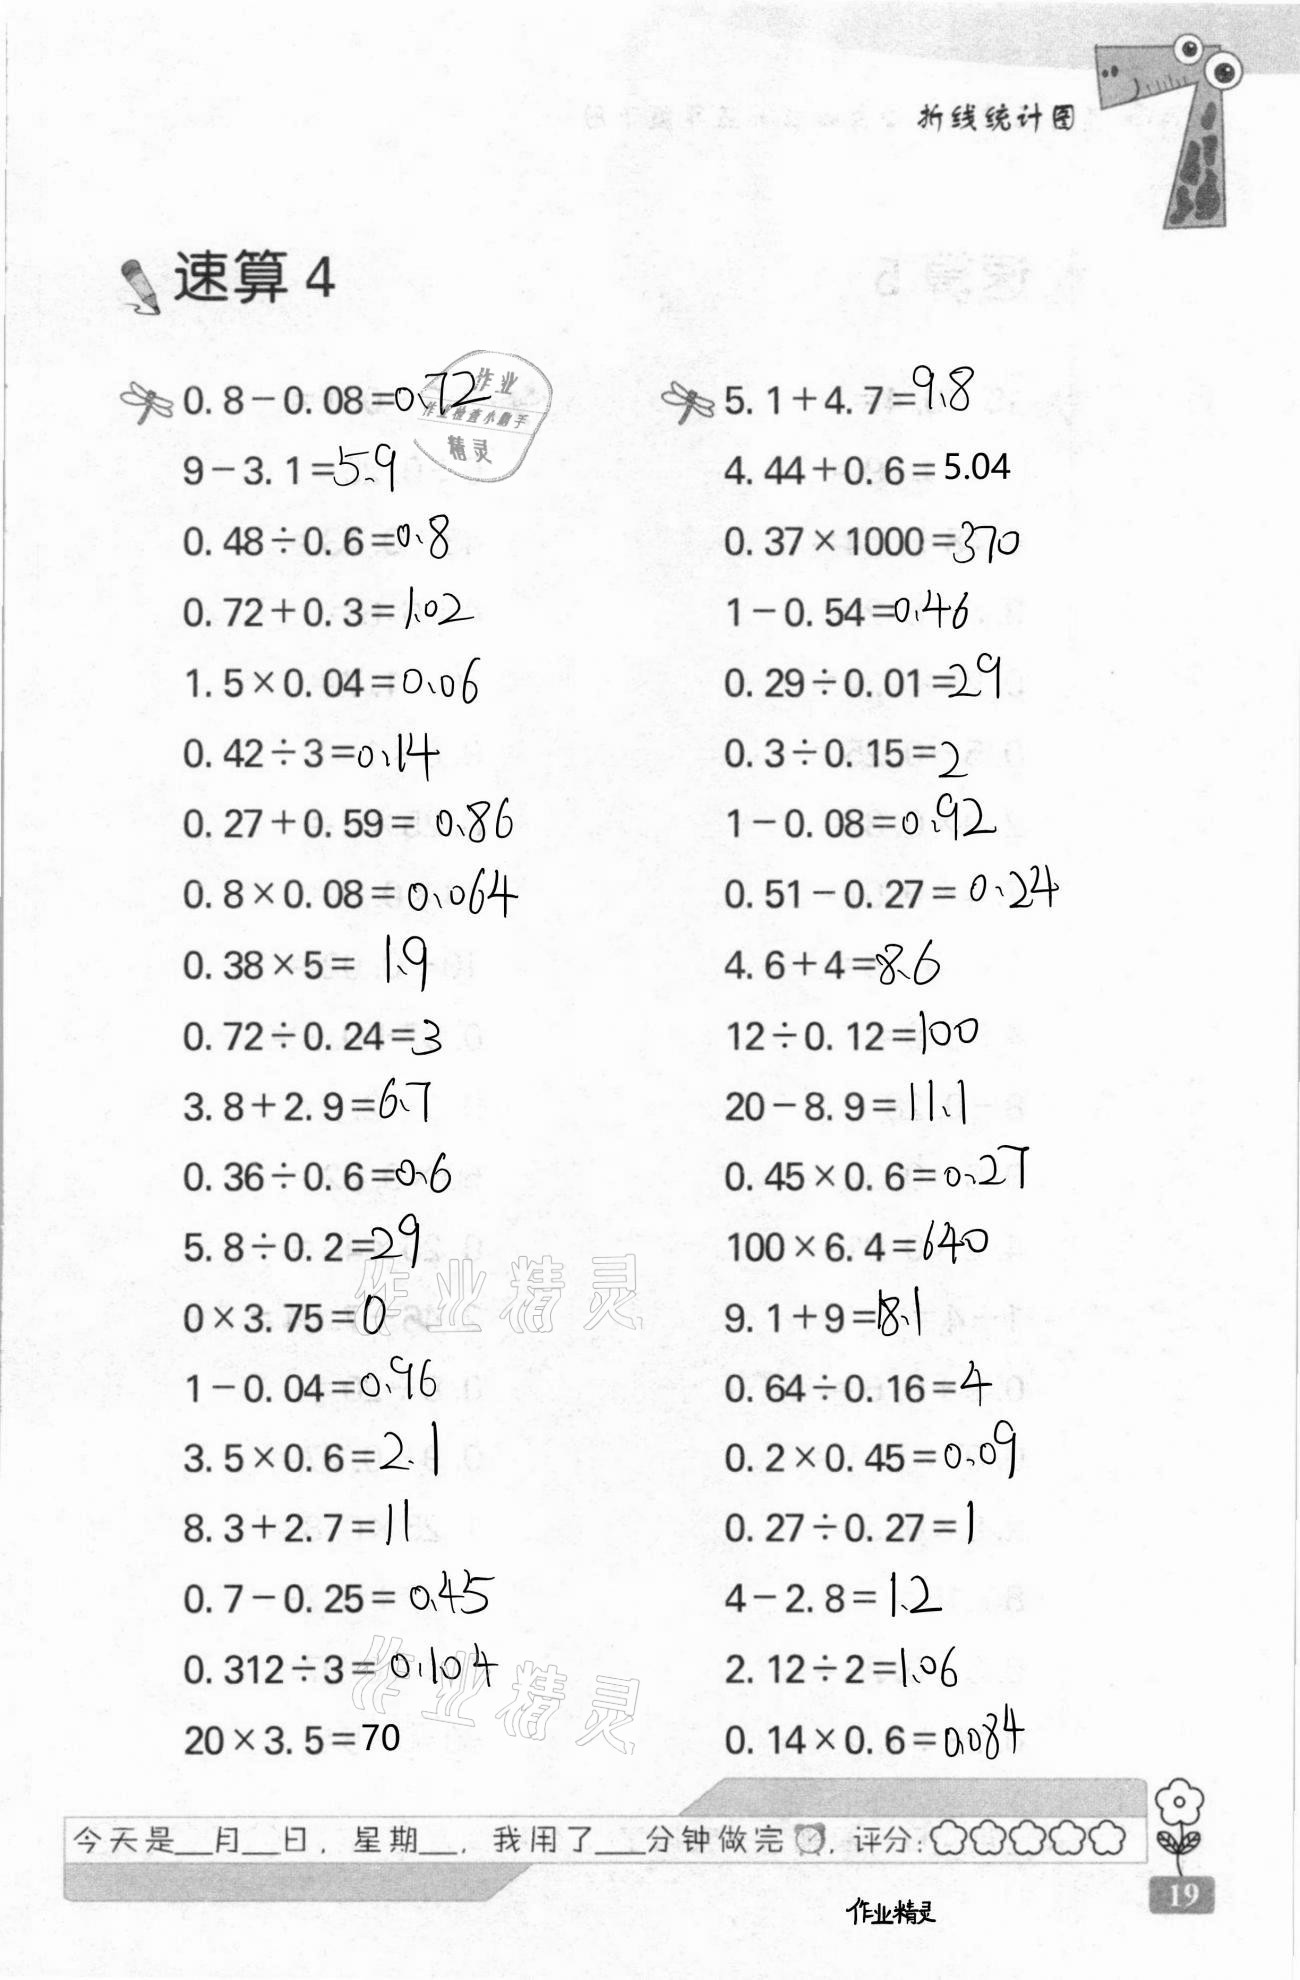 折线统计图
速算 4
0.8-0.08=0.72
9-3.1=5.9
0.48÷0.6=0.8
0.72+0.3=1.02
1.5×0.04=0.06
0.42÷3=0.14
0.27+0.59=0.86
0.8×0.08=0.064
0.38×5=1.9
0.72÷0.24=3
3.8+2.9=6.7
0.36÷0.6=0.6
5.8÷0.2=29
0×3.75=0
1-0.04=0.96
3.5×0.6=2.1
8.3+2.7=11
0.7-0.25=0.45
0.312÷3=0.104
20×3.5=70
5.1+4.7=9.8
4.44+0.6=5.04
0.37×1000=370
1-0.54=0.46
0.29÷0.01=29
0.3÷0.15=2
1-0.08=0.92
0.51-0.27=0.24
4.6+4=8.6
12÷0.12=100
20-8.9=11.1
0.45×0.6=0.27
100×6.4=640
9.1+9=18.1
0.64÷0.16=4
0.2×0.45=0.09
0.27÷0.27=1
4-2.8=1.2
2.12÷2=1.06
0.14×0.6=0.084
作业
作业检查小助手
精灵
作业精灵
作业精灵
今天是__月__日，星期__，我用了___分钟做完，评分：
19
作业精灵